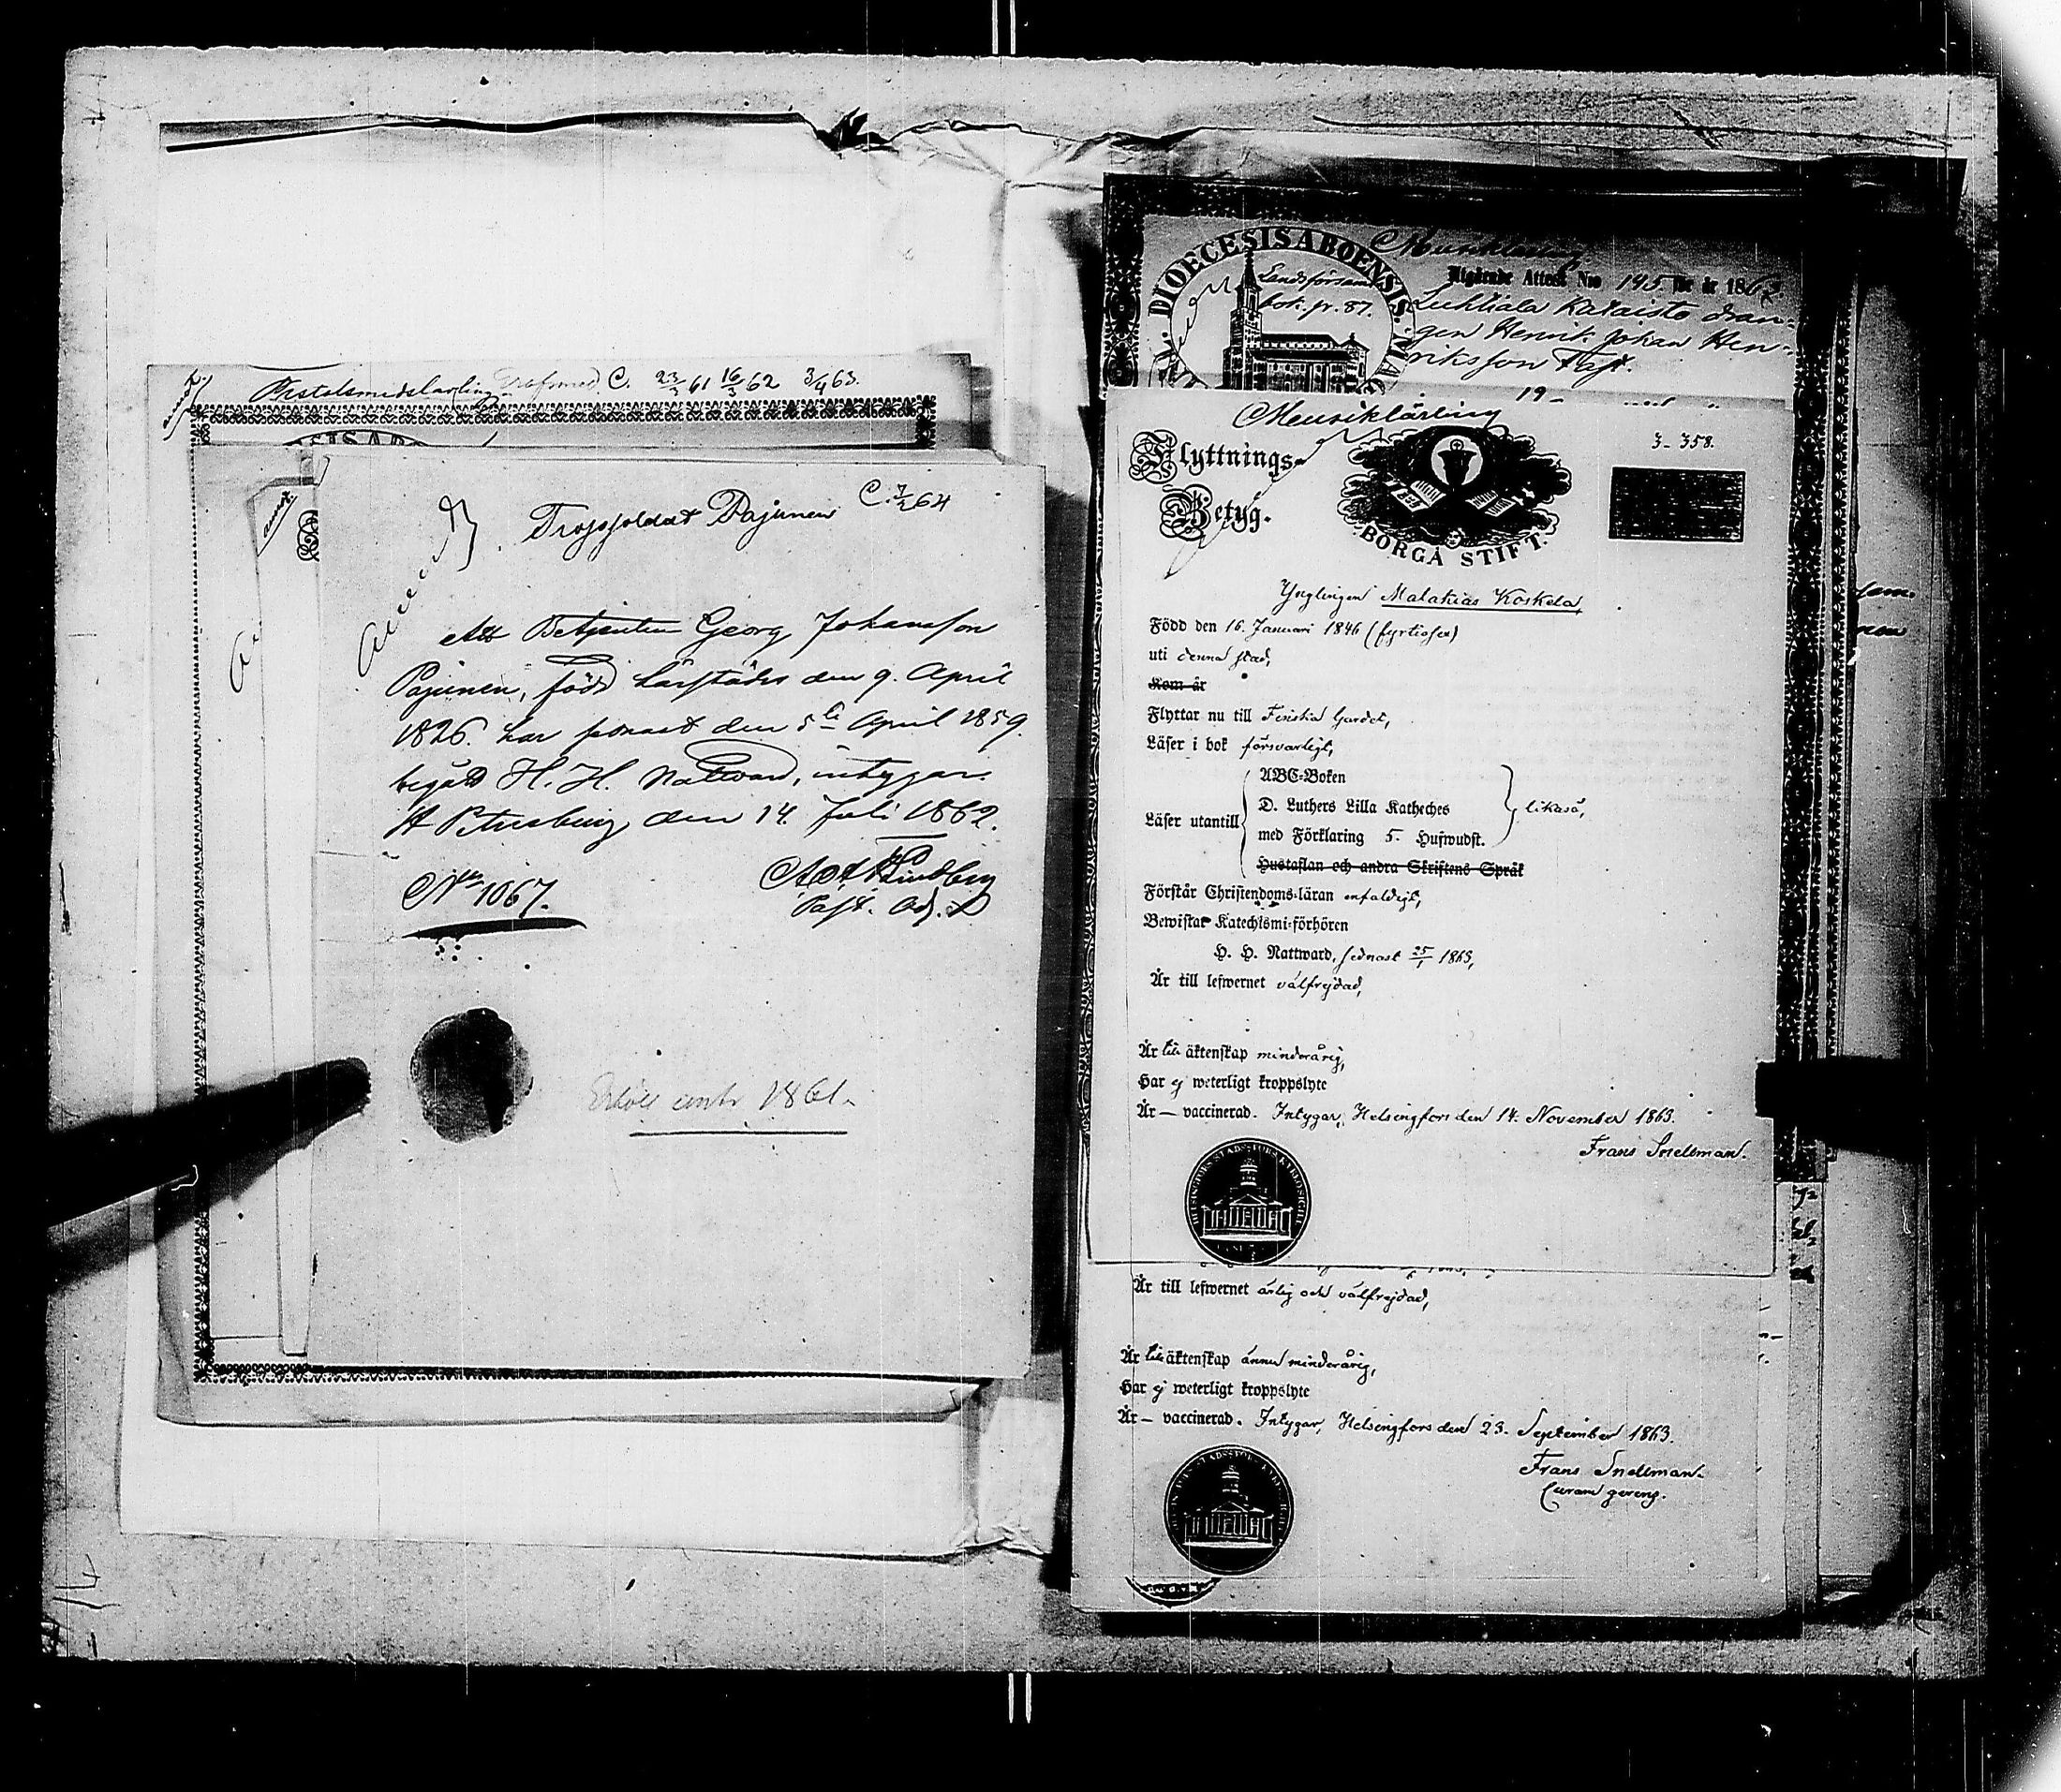 C. 23/3 61 16/3 62 3/4 63.
Trossoldat Pajunen C. 7/2 64
Att Betjenten Georg Johansson
Pajunen, född härstädes den 9. April
1826. har senast den 5te April 1859.
begått H. H. Nattvard, intygar.
St Petersburg den 14. Juli 1862.
No 1067.
Lindberg
Past. Adj.
1861.
Musiklärling
DIOECESIS ABOENSIS
Landsförsaml.
bok. pr. 87.
Utgående Attest No 195 för år 1863.
Kataisto drän-
gen Henrik Johan Hen-
riksson Fast.
19-
Musiklärling
3-358.
Flyttnings-
Betyg.
BORGÅ STIFT.
Ynglingen Malakias Koskela,
Född den 16. Januari 1846 (fyrtiosex)
uti denna stad,
Kom år
Flyttar nu till Finska Gardet,
Läser i bok försvarligt,
Läser utantill
ABC-Boken
D. Luthers Lilla Katheches
med Förklaring 5. Hufwudst.
likaså,
Hustaflan och andra Skriftens Språk
Förstår Christendoms-läran enfaldigt,
Bewistar Katechismi-förhören
H. H. Nattward, sednast 25/1 1863,
Är till lefwernet välfrejdad,
Är till äktenskap minderårig,
Har ej weterligt kroppslyte
Är — vaccinerad. Intygar, Helsingfors den 14. November 1863.
Frans Snellman.
Är till lefwernet ärlig och välfrejdad,
Är till äktenskap ännu minderårig,
Har ej weterligt kroppslyte
Är — vaccinerad. Intygar, Helsingfors den 23. September 1863.
Frans Snellman.
Curam gerens.